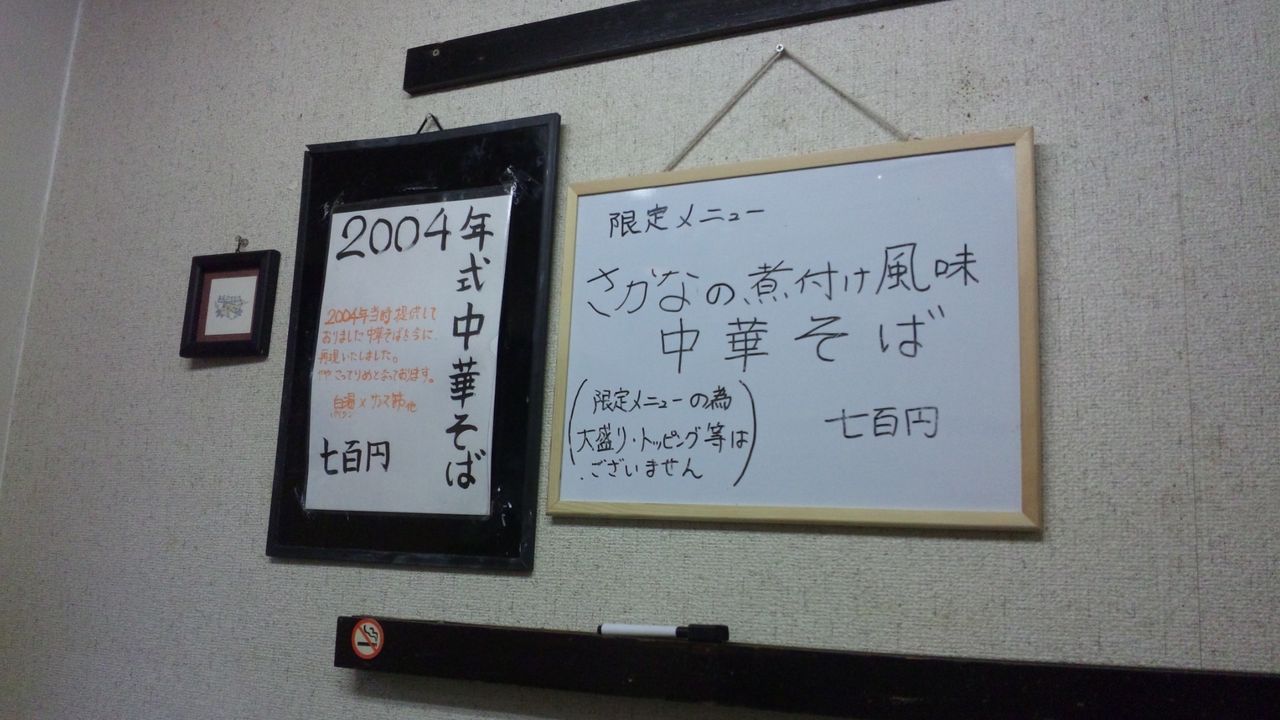 2004年式中華そば
2004年当時提供して
おりました中華そばを今に
再現いたしました。
ややこってりめとなっております。
白湯×サンマ節他
パイタン
七百円
限定メニュー
さかなの煮付け風味
中華そば
(限定メニューの為
大盛り・トッピング等は
ございません)
七百円